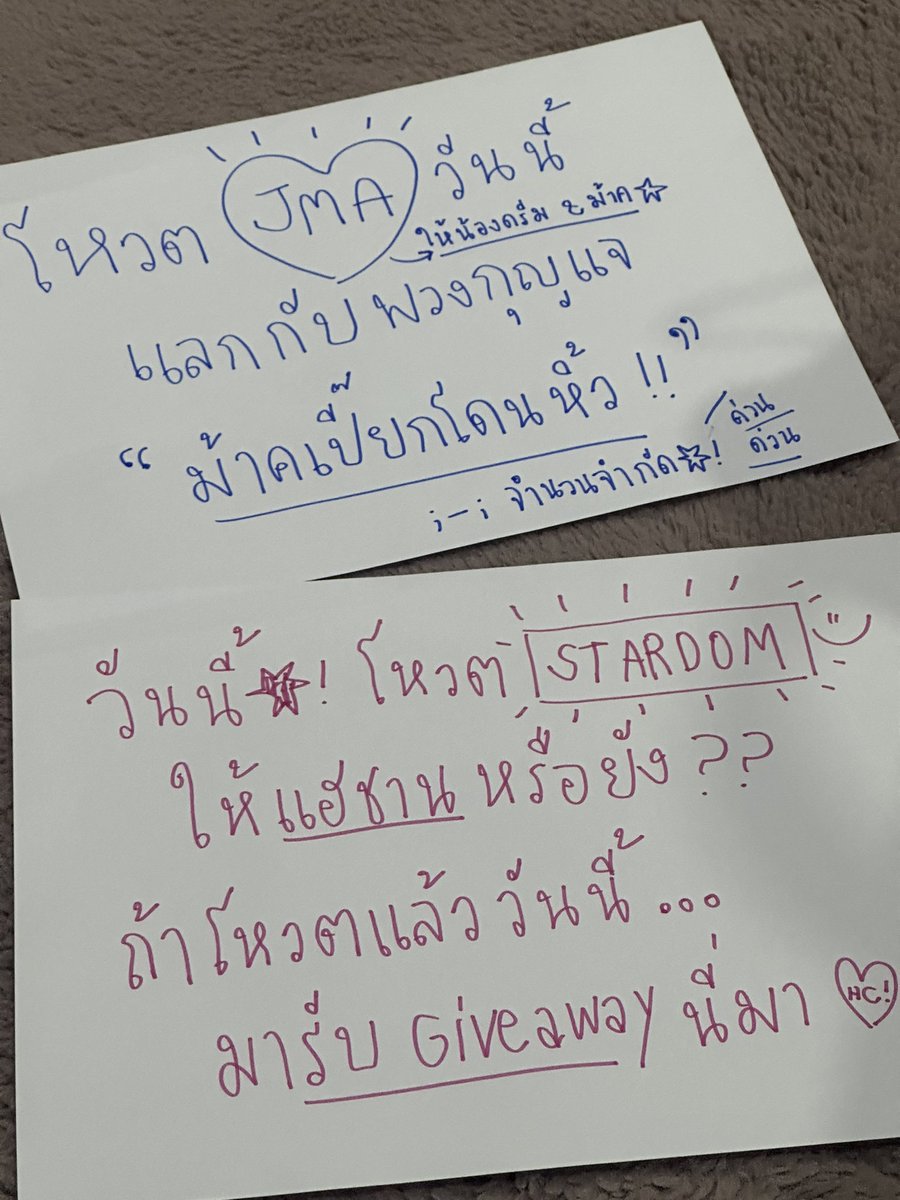 โหวต JMA วันนี้
→ให้น้องดรีม & ม้าค☆
แลกกับพวงกุญแจ
“ม้าคเปี๊ยกโดนหิ้ว!!”
;-; จำนวนจำกัด☆! ด่วน
ด่วน
วันนี้☆! โหวต STARDOM
ให้แฮชานหรือยัง??
ถ้าโหวตแล้ววันนี้...
มารับ Giveaway นี่มา HC!